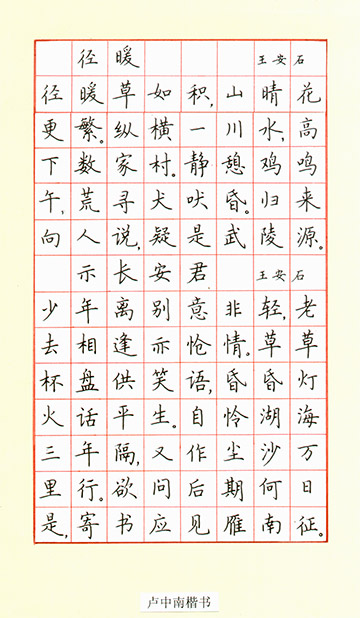 径暖 王安石
径暖草如积,山晴花
更繁。纵横一川水,高
下数家村。静憩鸡鸣
午,荒寻犬吠昏。归来
向人说,疑是武陵源。
示长安君 王安石
少年离别意非轻,老
去相逢亦怆情。草草
杯盘供笑语,昏昏灯
火话平生。自怜湖海
三年隔,又作尘沙万
里行。欲问后期何日
是,寄书应见雁南征。
卢中南楷书